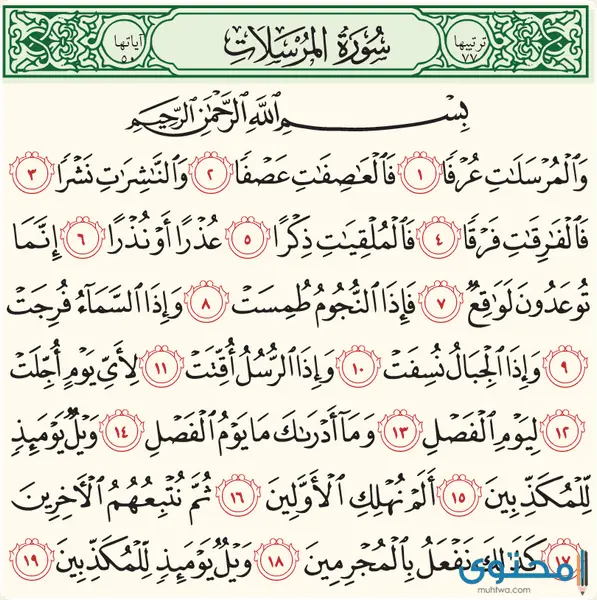 ترتيبها ٧٧ سُورَةُ المُرْسَلَاتِ آياتها ٥٠
بِسْمِ ٱللَّهِ ٱلرَّحْمَٰنِ ٱلرَّحِيمِ
وَٱلْمُرْسَلَٰتِ عُرْفًا ١ فَٱلْعَٰصِفَٰتِ عَصْفًا ٢ وَٱلنَّٰشِرَٰتِ نَشْرًا ٣
فَٱلْفَٰرِقَٰتِ فَرْقًا ٤ فَٱلْمُلْقِيَٰتِ ذِكْرًا ٥ عُذْرًا أَوْ نُذْرًا ٦ إِنَّمَا
تُوعَدُونَ لَوَٰقِعٌ ٧ فَإِذَا ٱلنُّجُومُ طُمِسَتْ ٨ وَإِذَا ٱلسَّمَآءُ فُرِجَتْ
٩ وَإِذَا ٱلْجِبَالُ نُسِفَتْ ١٠ وَإِذَا ٱلرُّسُلُ أُقِّتَتْ ١١ لِأَىِّ يَوْمٍ أُجِّلَتْ
١٢ لِيَوْمِ ٱلْفَصْلِ ١٣ وَمَآ أَدْرَىٰكَ مَا يَوْمُ ٱلْفَصْلِ ١٤ وَيْلٌ يَوْمَئِذٍ
لِّلْمُكَذِّبِينَ ١٥ أَلَمْ نُهْلِكِ ٱلْأَوَّلِينَ ١٦ ثُمَّ نُتْبِعُهُمُ ٱلْأَخِرِينَ
١٧ كَذَٰلِكَ نَفْعَلُ بِٱلْمُجْرِمِينَ ١٨ وَيْلٌ يَوْمَئِذٍ لِّلْمُكَذِّبِينَ ١٩
محتوى
muhtwa.com